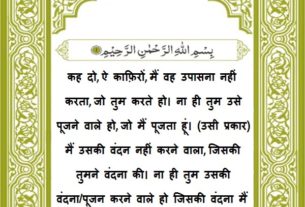 بِسْمِ اللهِ الرَّحْمٰنِ الرَّحِيْمِ
कह दो, ऐ काफ़िरों, मैं वह उपासना नहीं
करता, जो तुम करते हो। ना ही तुम उसे
पूजने वाले हो, जो मैं पूजता हूं। (उसी प्रकार)
मैं उसकी वंदना नहीं करने वाला, जिसकी
तुमने वंदना की। ना ही तुम उसकी
वंदना/पूजन करने वाले हो जिसकी वंदना मैं